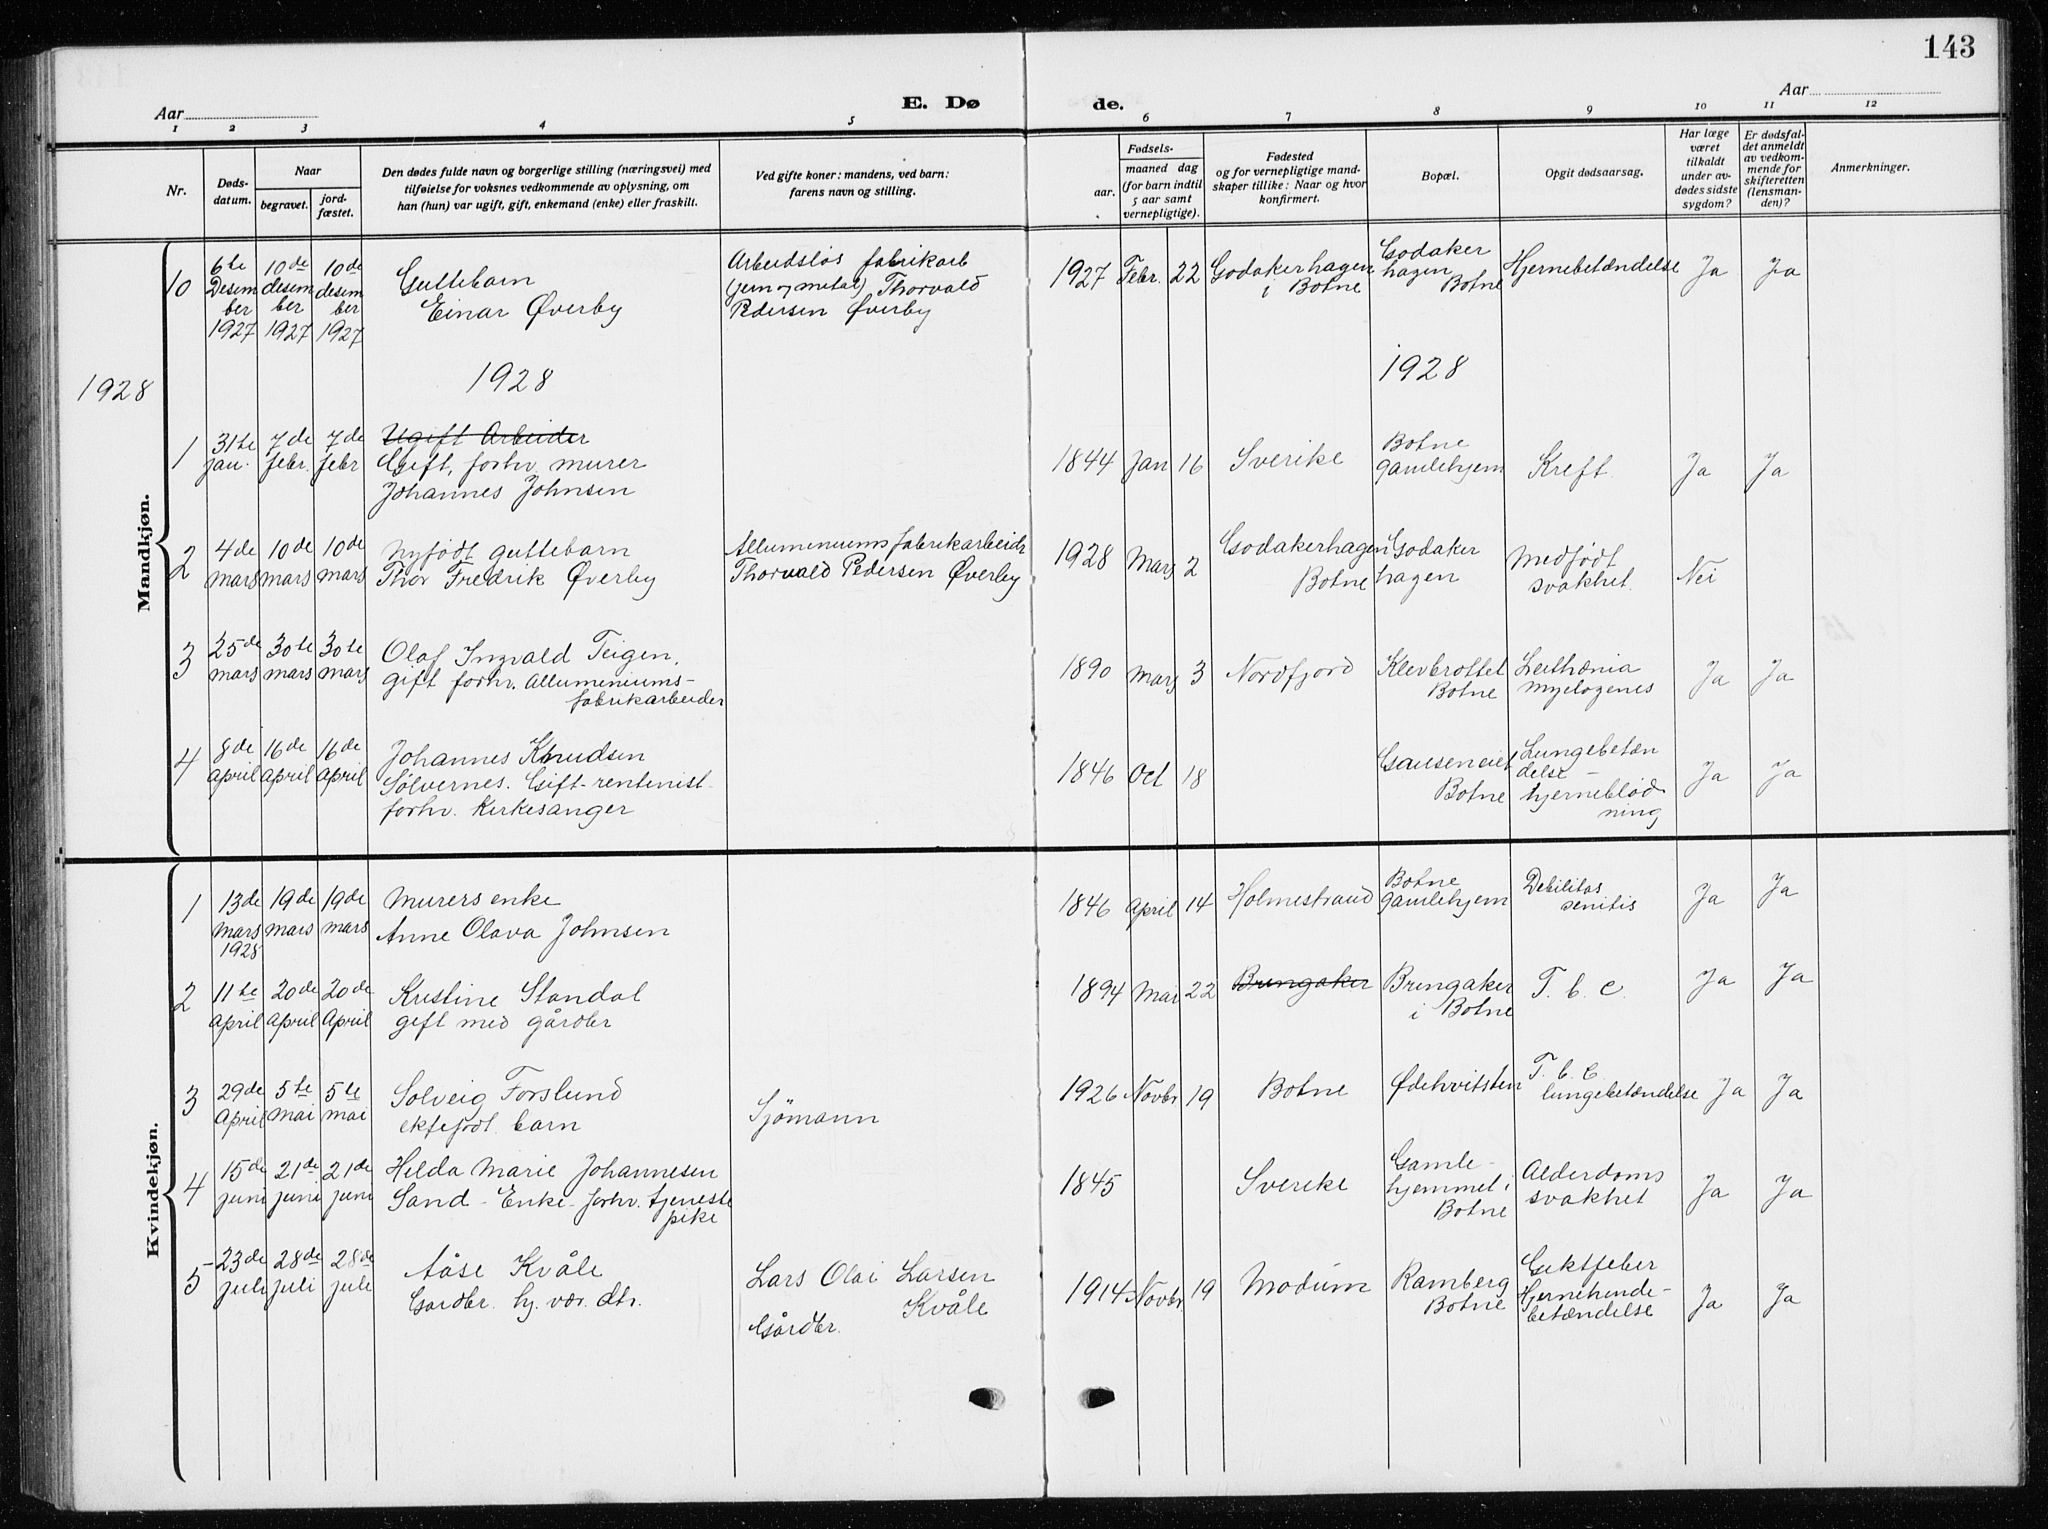 143
Aar
E. Dø
de.
Aar
1 2 3 4 5 6 7 8 9 10 11 12
Nr.
Døds-
datum.
Naar
begravet.
jord-
fæstet.
Den dødes fulde navn og borgerlige stilling (næringsvei) med
tilføielse for voksnes vedkommende av oplysning, om
han (hun) var ugift, gift, enkemand (enke) eller fraskilt.
Ved gifte koner: mandens, ved barn:
farens navn og stilling.
Fødsels-
aar.
maaned dag
(for barn indtil
5 aar samt
vernepligtige).
Fødested
og for vernepligtige mand-
skaper tillike: Naar og hvor
konfirmert.
Bopæl.
Opgit dødsaarsag.
Har læge
været
tilkaldt
under av-
dødes sidste
sygdom?
Er dødsfal-
det anmeldt
av vedkom-
mende for
skifteretten
(lensman-
den)?
Anmerkninger.
Mandkjøn.
10
6te
Desem
ber
1927
10de
desem
ber
1927
10de
desem
ber
1927
Guttebarn
Einar Øverby
Arbeidsløs fabrikarb
(jern og metal) Thorvald
Pedersen Øverby
1927 Febr. 22
Godakerhagen
i Botne
Godaker
hagen
Botne
Hjernebetændelse
Ja
Ja
1928
1928
1928
1
31te
jan.
7de
febr.
7de
febr
Ugift Arbeider
Gift, forhv. murer
Johannes Johnsen
1844 Jan 16
Sverike
Botne
gamlehjem
Kreft
Ja
Ja
2
4de
mars
10de
mars
10de
mars
Nyfødt guttebarn
Thor Fredrik Øverby
Allumeniumsfabrikarbeidr
Thorvald Pedersen Øverby
1928 Mars 2
Godakerhagen
Botne
Godaker
hagen
Medfødt
svakhet.
Nei
3
25de
mars
30te
mars
30te
mars
Olaf Ingvald Teigen,
gift forhv. Allumeniums-
fabrikarbeider
1890 Mars 3
Nordfjord
Klevbrottet
Botne
Leithænia
myelogenes
Ja
Ja
4
8de
april
16de
april
16de
april
Johannes Knudsen
Sølvernes. Gift-rentenist
forhv. Kirkesanger
1846 Oct 18
Gauseneiet
Botne
Lungebetæn
delse -
hjerneblød
ning
Ja
Ja
Kvindekjøn.
1
13de
mars
1928
19de
mars
19de
mars
Murers enke
Anne Olava Johnsen
1846 April 14
Holmestrand
Botne
gamlehjem
Debilitas
senilis
Ja
Ja
2
11te
April
20de
April
20de
April
Kristine Standal
gift med gårdbr
1894 Mai 22
Bringaker
Bringaker
i Botne
T. b. C.
Ja
Ja
3
29de
April
5te
mai
5te
mai
Solveig Forslund
ektefødt barn
Sjömann
1926 Novbr 19
Botne
Ødehvitsten
T. b. C
lungebetændelse
Ja
Ja
4
15de
juni
21de
juni
21de
juni
Hilda Marie Johannesen
Sand - Enke - forhv. tjeneste
pike
1845
Sverike
Gamle-
hjemmet i
Botne
Alderdoms
svakhet
Ja
Ja
5
23de
juli
28de
juli
28de
juli
Aåse Kvåle
Gardbr. hj. vær. dtr.
Lars Olai Larsen
Kvåle
Gårdbr.
1914 Novbr 19
Modum
Ramberg
Botne
Giktfeber
Hjernehinde-
betændelse
Ja
Ja